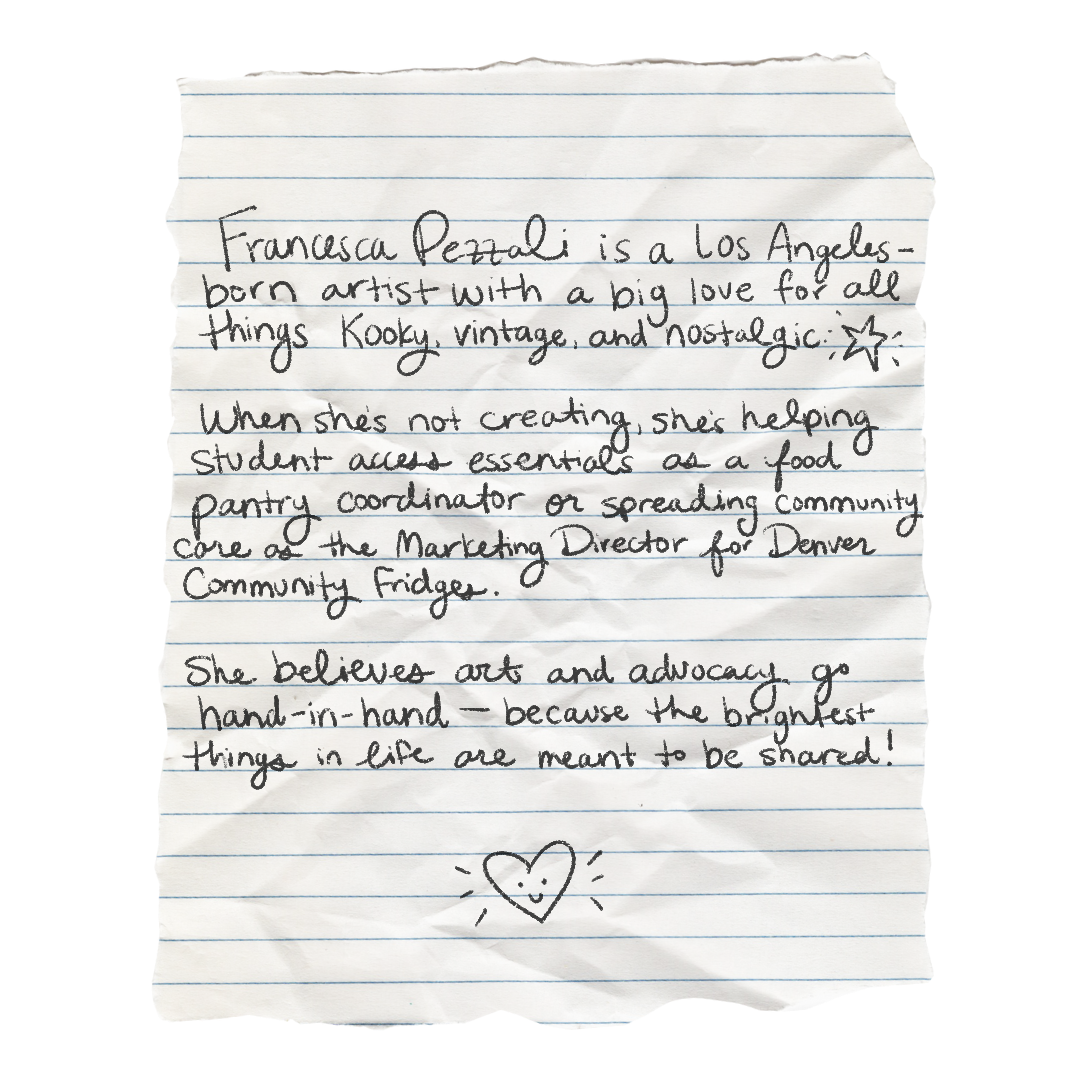 Francesca Pezzali is a Los Angeles-
born artist with a big love for all
things Kooky, vintage, and nostalgic.
When she's not creating, she's helping
student access essentials as a food
pantry coordinator or spreading community
care as the Marketing Director for Denver
Community Fridges.
She believes art and advocacy go
hand-in-hand — because the brightest
things in life are meant to be shared!